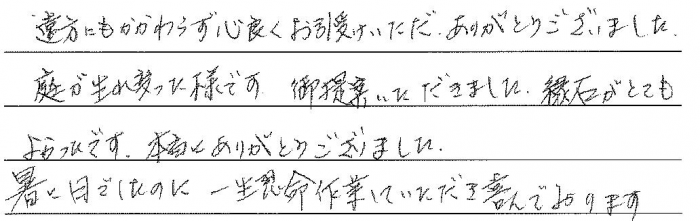 遠方にもかかわらず心良くお引受けいただ、ありがとうございました。
庭が生れ変った様です 御提案いただきました、縁石がとても
よかったです。本当にありがとうございました。
暑い日でしたのに 一生懸命作業していただき喜んでおります